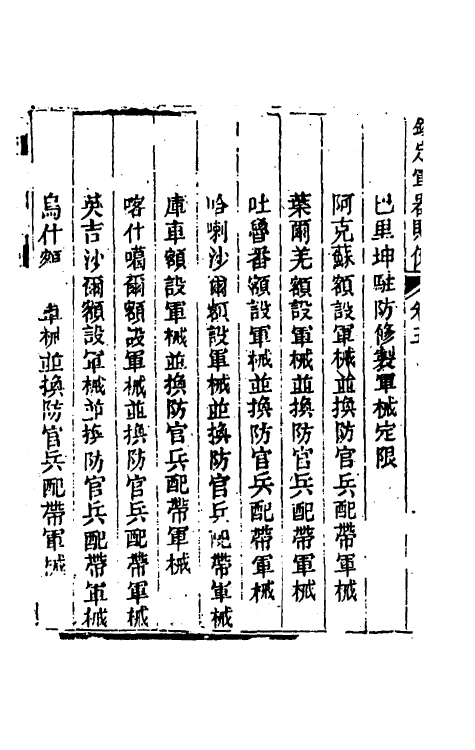 欽定軍器則例 卷五
巴里坤駐防修製軍械定限
阿克蘇額設軍械並換防官兵配帶軍械
葉爾羌額設軍械並換防官兵配帶軍械
吐魯番額設軍械並換防官兵配帶軍械
哈喇沙爾額設軍械並換防官兵配帶軍械
庫車額設軍械並換防官兵配帶軍械
喀什噶爾額設軍械並換防官兵配帶軍械
英吉沙爾額設軍械並換防官兵配帶軍械
烏什額 軍械並換防官兵配帶軍械